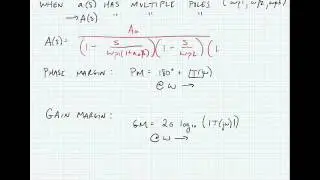 WHEN a(s) HAS MULTIPLE POLES (ωp1, ωp2, ωp3)
→ A(s) " "
A(s) = Ao
(1 - s / ωp1(1+aoβ)) (1 - s / ωp2) (1
PHASE MARGIN: PM = 180° + T(jω)
@ ω →
GAIN MARGIN: GM = 20 log10 (|T(jω)|)
@ ω →